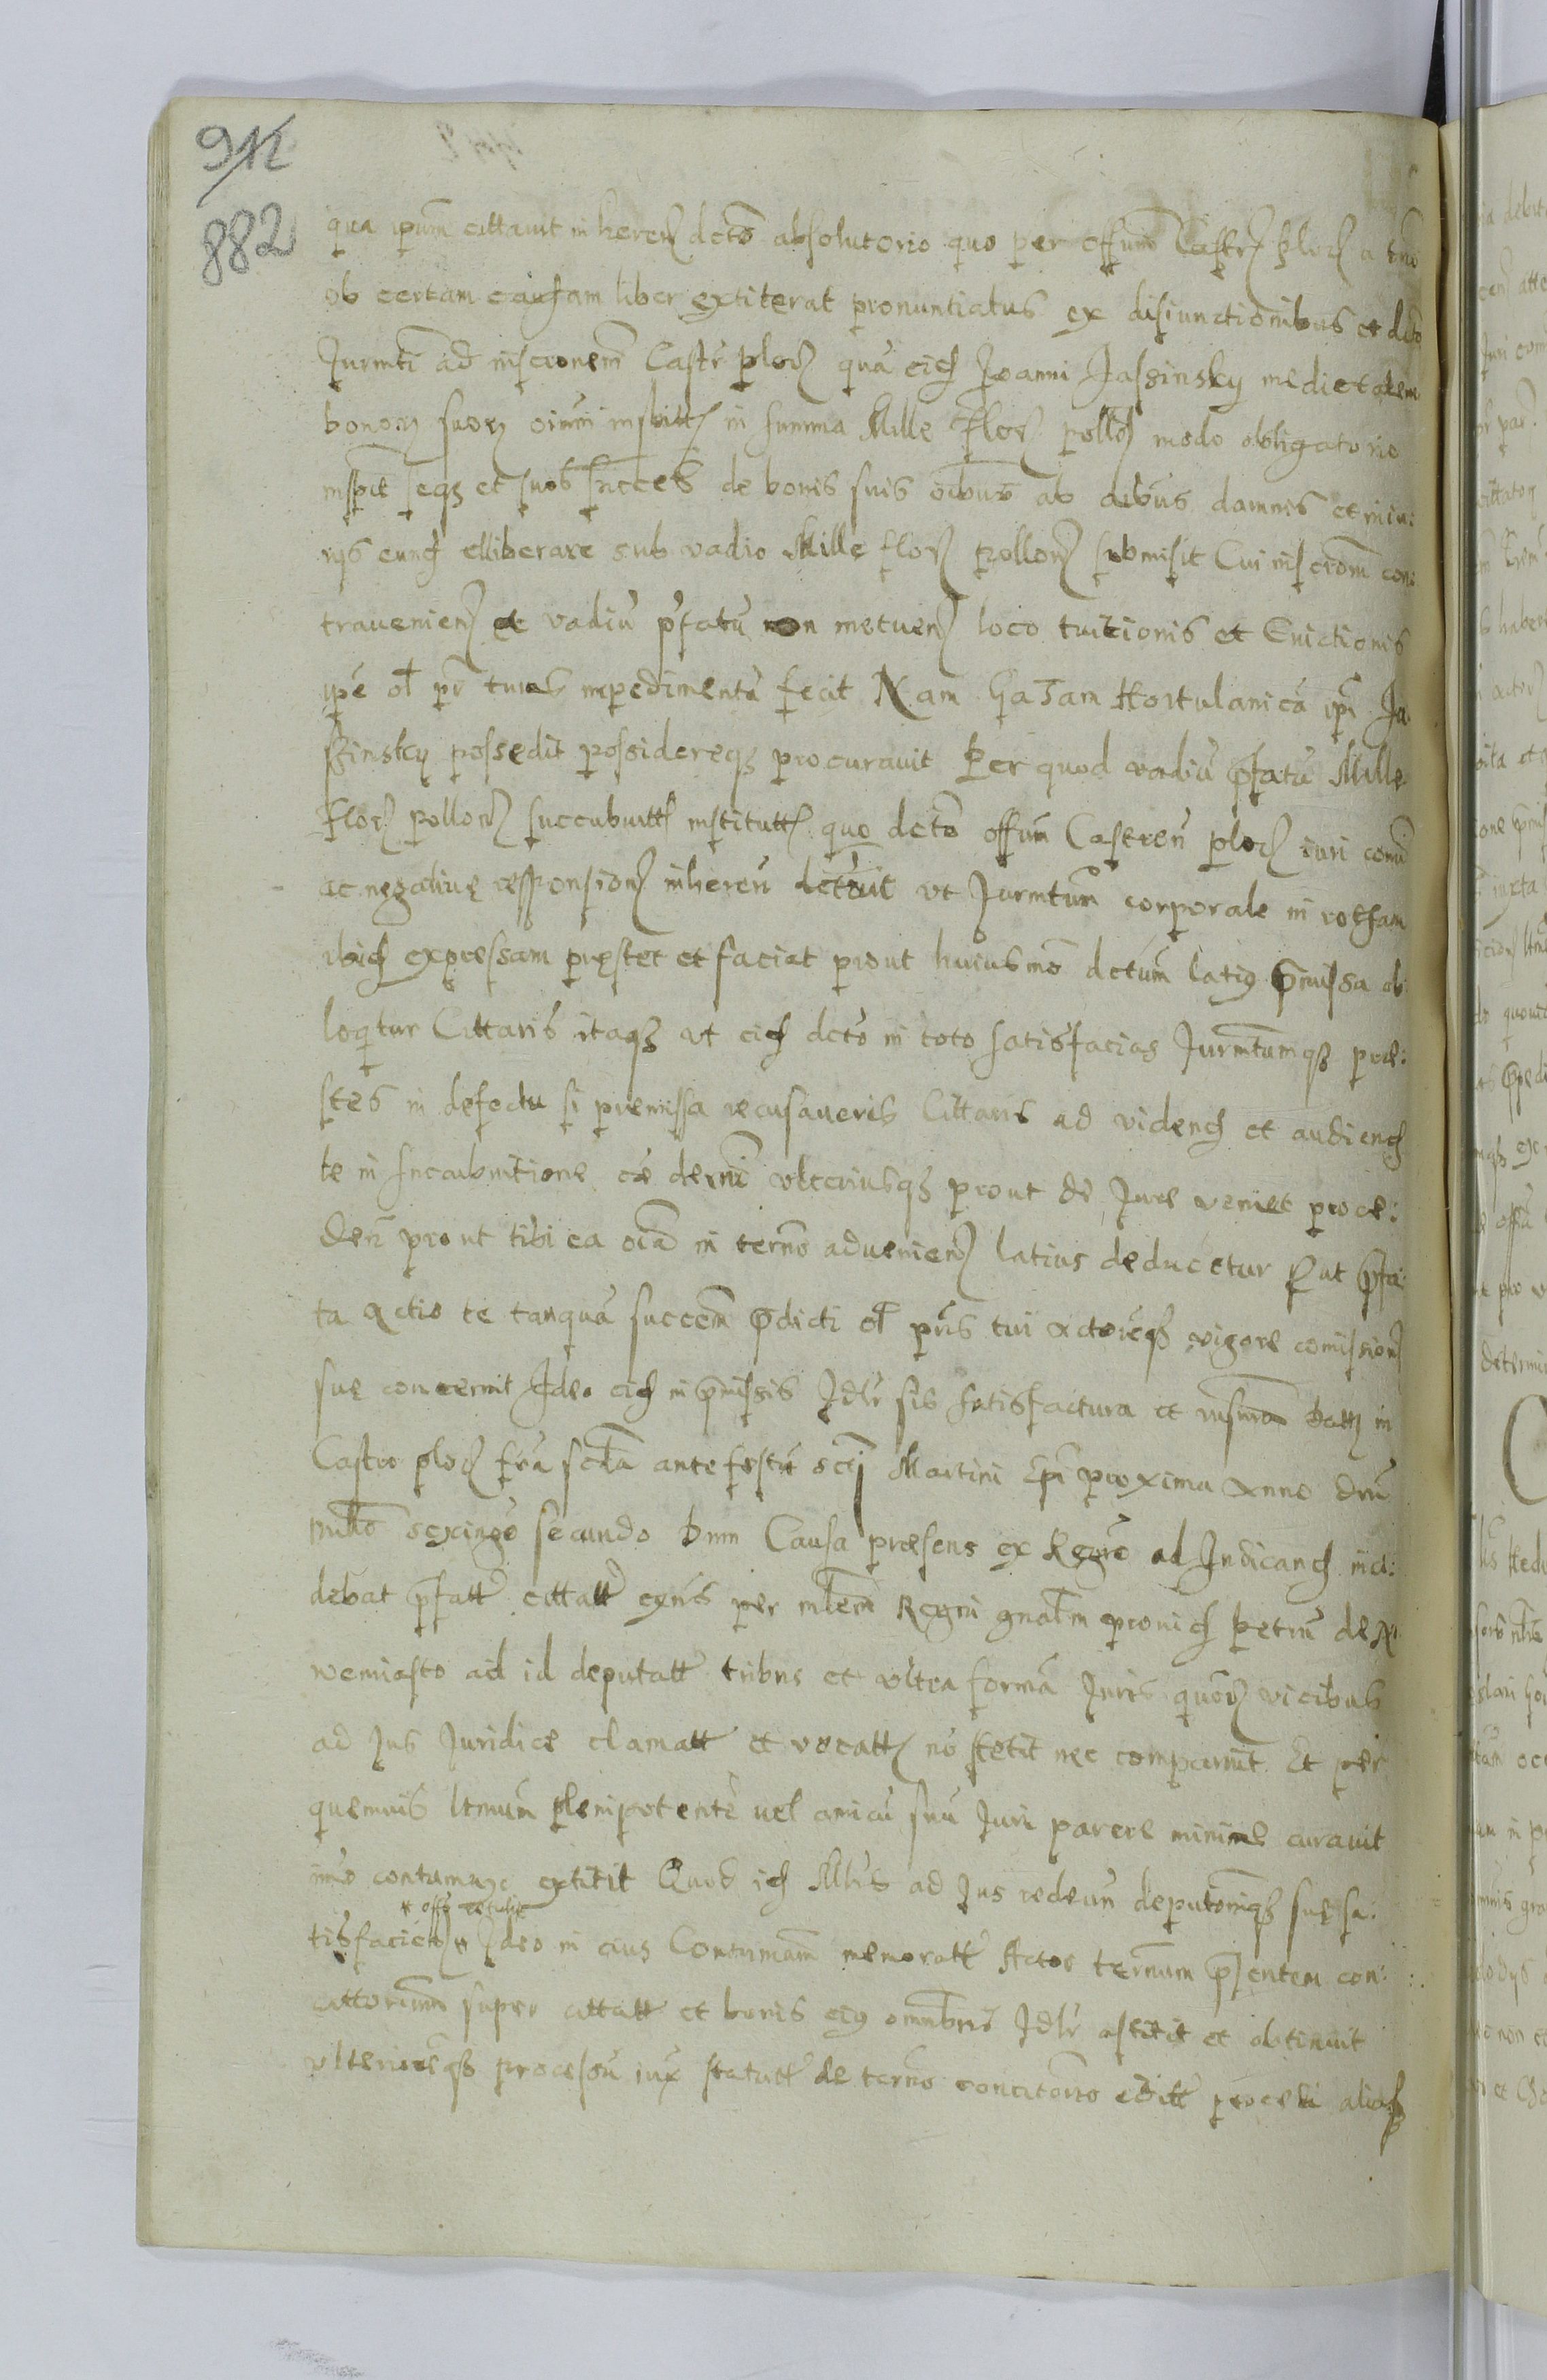 912
882
qua ipum cittavit in heren decto absolutorio quo per offum Castr ploc a tno
ob certam causam liber extiterat pronuntiatus ex disiunctionibus et
Jurmti ad inscrionem Castr ploc qua eid Joanni Jassinsky medietatem
bonor suor oium in summa Mille Flor pollo modo obligatorio
inscpit seqz et suos succes de bonis suis oibus ab oibus damnis et iniu:
rijs eund elliberare sub vadio Mille flor pollon submisit Cui inscrioni con:
travenien et vadiu pfatu non metuen loco tuitionis et Evictionis
ipe ol pr tuus impedimentu fecit Nam Hortulanica ipi Ja:
ssinsky possedit possidereqz procuravit Per quod vadiu pfatu Mille
Flor pollon succubuitt quo decto offum Castren ploc iuri comi
ac negative responsion inheren decrevit ut Jurmtum corporale in rotham
ibid expressam prestet et faciat prout huiusmo dectum latius pmissa ob:
loqtur Cittaris itaqz ut eid decto in toto satisfacias Jurmtumqz pre:
stes in defectu si premissa recusaveris Cittaris ad vidend et audiend
te in succubuitione ulteriusqz prout de Jure veniet proce:
den prout tibi ea oia in terno advenien latius deducetur Put pfa:
ta Actio te tanqua succem pdicti ol pris tui Actoreqz vigore comission
sue concernit Ideo eid in pmissis Jdlr sis satisfactura et rnsura Datt in
Castro ploc fria scda ante festu scti Martini Epi proxima Anno dni
millo sexingo secundo Dum Causa praesens ex Regro ad Judicand inci:
debat pfatt cittatt per mlem Regni gnalem provid Petru de No:
wemiasto ad id deputatt tribus et ultra forma Juris quor vicibus
ad Jus Juridice clamatt et vocatt no stetit nec comparuit Et per
quemvis ltmum plenipotente vel amicu suu Juri parere minime curavit
imo contumax extitit Quod id Mlris ad Jus redeun deputoniqz sue sa:
* offo retulit
tisfacien * Ideo in eius Contumam memoratt Actor ternum psentem con:
cittorium super cittatt et bonis eius omnibus Jdlr astitit et obtinuit
ulterioreqz processu iux statutt de terno concitorio editt procedi aliasqz